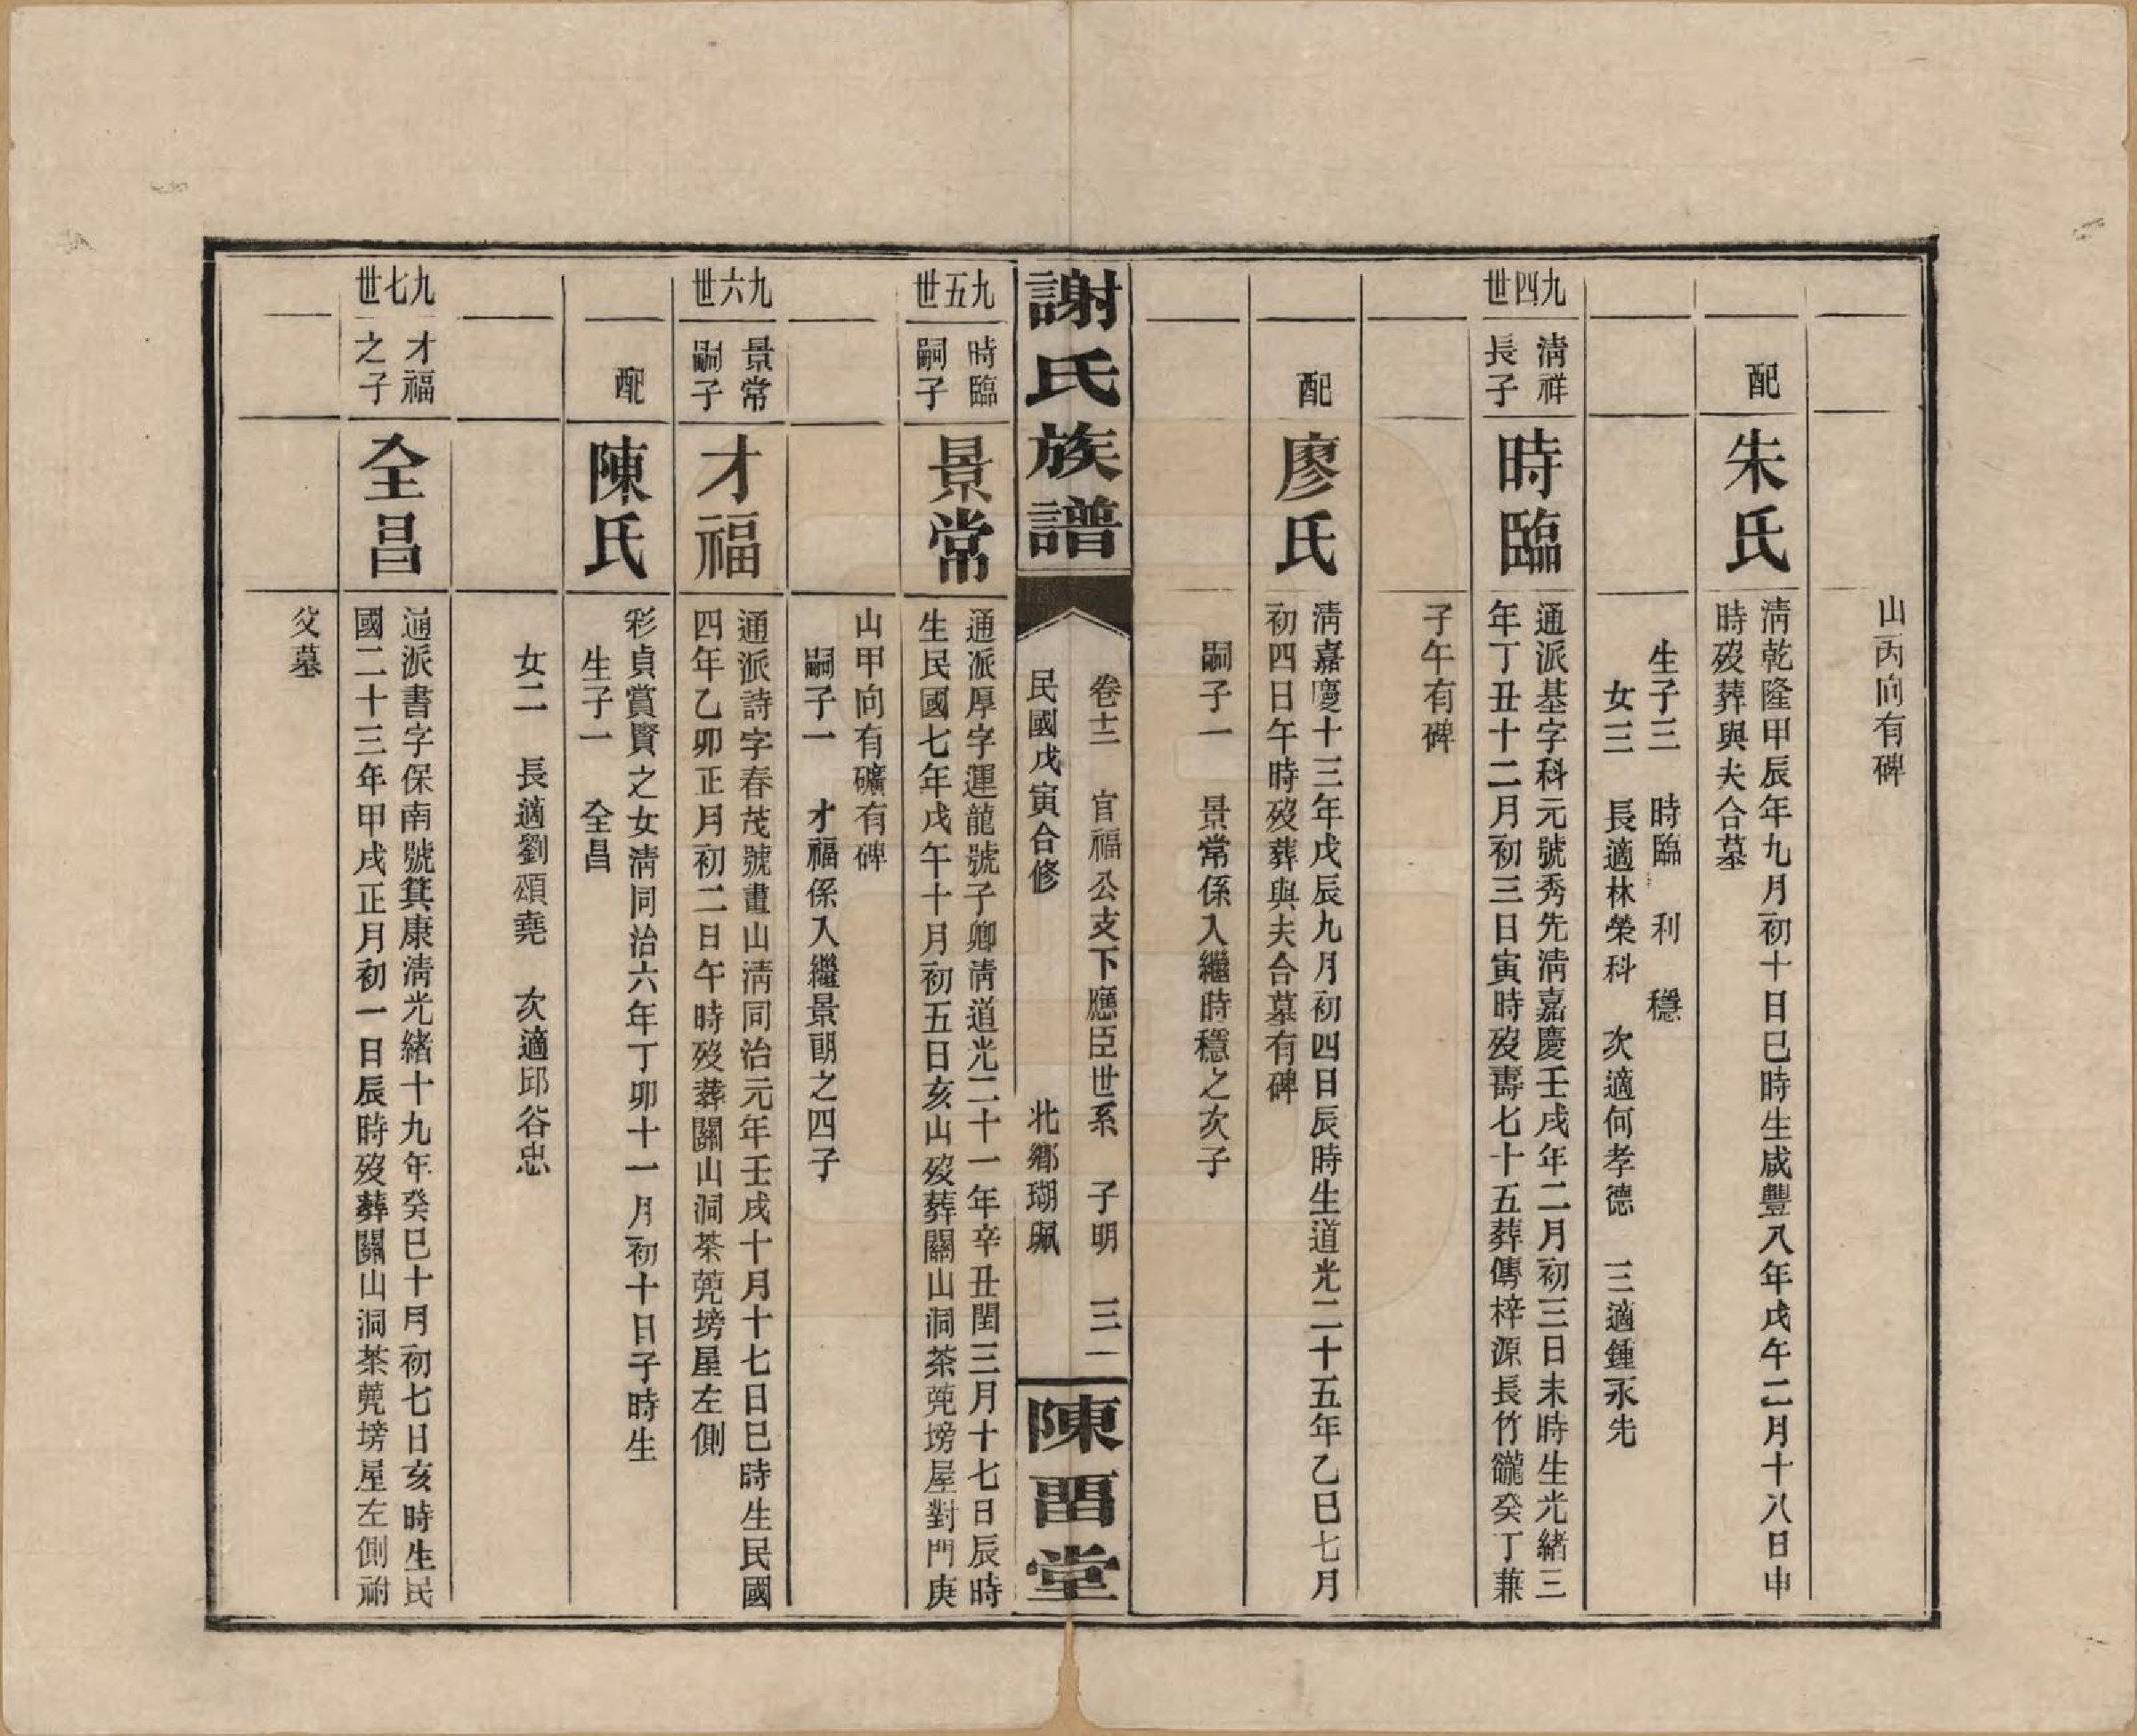 山丙向有碑
配
朱氏
淸乾隆甲辰年九月初十日巳時生咸豐八年戊午二月十八日申
時歿葬與夫合墓
生子三　時臨　利　穩
女三　長適林榮科　次適何孝德　三適鍾永先
九四世
淸祥
長子
時臨
通派基字科元號秀先淸嘉慶壬戌年二月初三日未時生光緒三
年丁丑十二月初三日寅時歿壽七十五葬傳梓源長竹巃癸丁兼
子午有碑
配
廖氏
淸嘉慶十三年戊辰九月初四日辰時生道光二十五年乙巳七月
初四日午時歿葬與夫合墓有碑
嗣子一　景常係入繼時穩之次子
謝氏族譜
卷十二　官福公支下應臣世系　子明　三一
民國戊寅合修　北鄉瑚珮
陳畱堂
九五世
時臨
嗣子
景常
通派厚字運龍號子卿淸道光二十一年辛丑閏三月十七日辰時
生民國七年戊午十月初五日亥山歿葬關山洞茶蔸塝屋對門庚
山甲向有礦有碑
嗣子一　才福係入繼景朝之四子
九六世
景常
嗣子
才福
通派詩字春茂號畫山淸同治元年壬戌十月十七日巳時生民國
四年乙卯正月初二日午時歿葬關山洞茶蔸塝屋左側
配
陳氏
彩貞賞賢之女淸同治六年丁卯十一月初十日子時生
生子一　全昌
女二　長適劉頌堯　次適邱谷忠
九七世
才福
之子
全昌
通派書字保南號箕康淸光緒十九年癸巳十月初七日亥時生民
國二十三年甲戌正月初一日辰時歿葬關山洞茶蔸塝屋左側祔
父墓